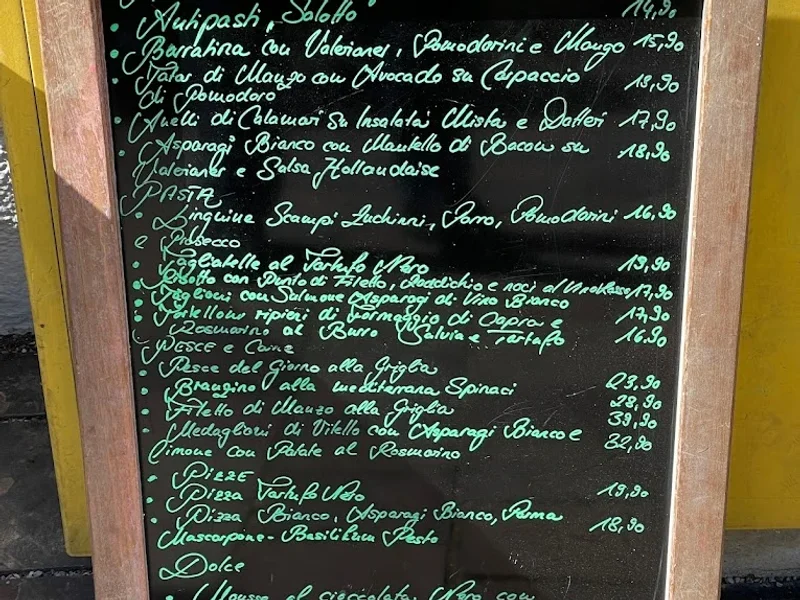 14,90
Antipasti, Salotto
• Burratina con Valerianer, Pomodorini e Mango 15,90
• Tatar di Mango con Avocado su Carpaccio 13,90
di Pomodoro
• Anelli di Calamari Su Insalata Mista e Datteri 17,90
• Asparagi Bianco con Mantello di Bacon su 18,90
Valerianer e Salsa Hollandaise
PASTA
• Linguine Scampi Zuchinni, Porro, Pomodorini 16,90
e Prosecco
• Tagliatelle al Tartufo Nero 19,90
• Risotto con Punto di Filetto, Raddichio e noci al Vino Rosso 17,90
• Taglioni con Salmone Asparagi al Vino Bianco 17,90
• Tortelloni ripieni di Formaggio di Capra e 16,90
Rosmarino al Burro Salvia e Tartufo
PESCE e Carne
• Pesce del Giorno alla Griglia 23,90
• Branzino alla mediterrana Spinaci 28,90
• Filetto di Manzo alla Griglia 39,90
• Medaglioni di Vitello con Asparagi Bianco e 32,90
Limone con Patate al Rosmarino
• PIZZE
• Pizza Tartufo Nero 19,90
• Pizza Bianco, Asparagi Bianco, Parma 18,90
Mascarpone - Basilikum Pesto
Dolce
• Mousse al cioccolata Nero con